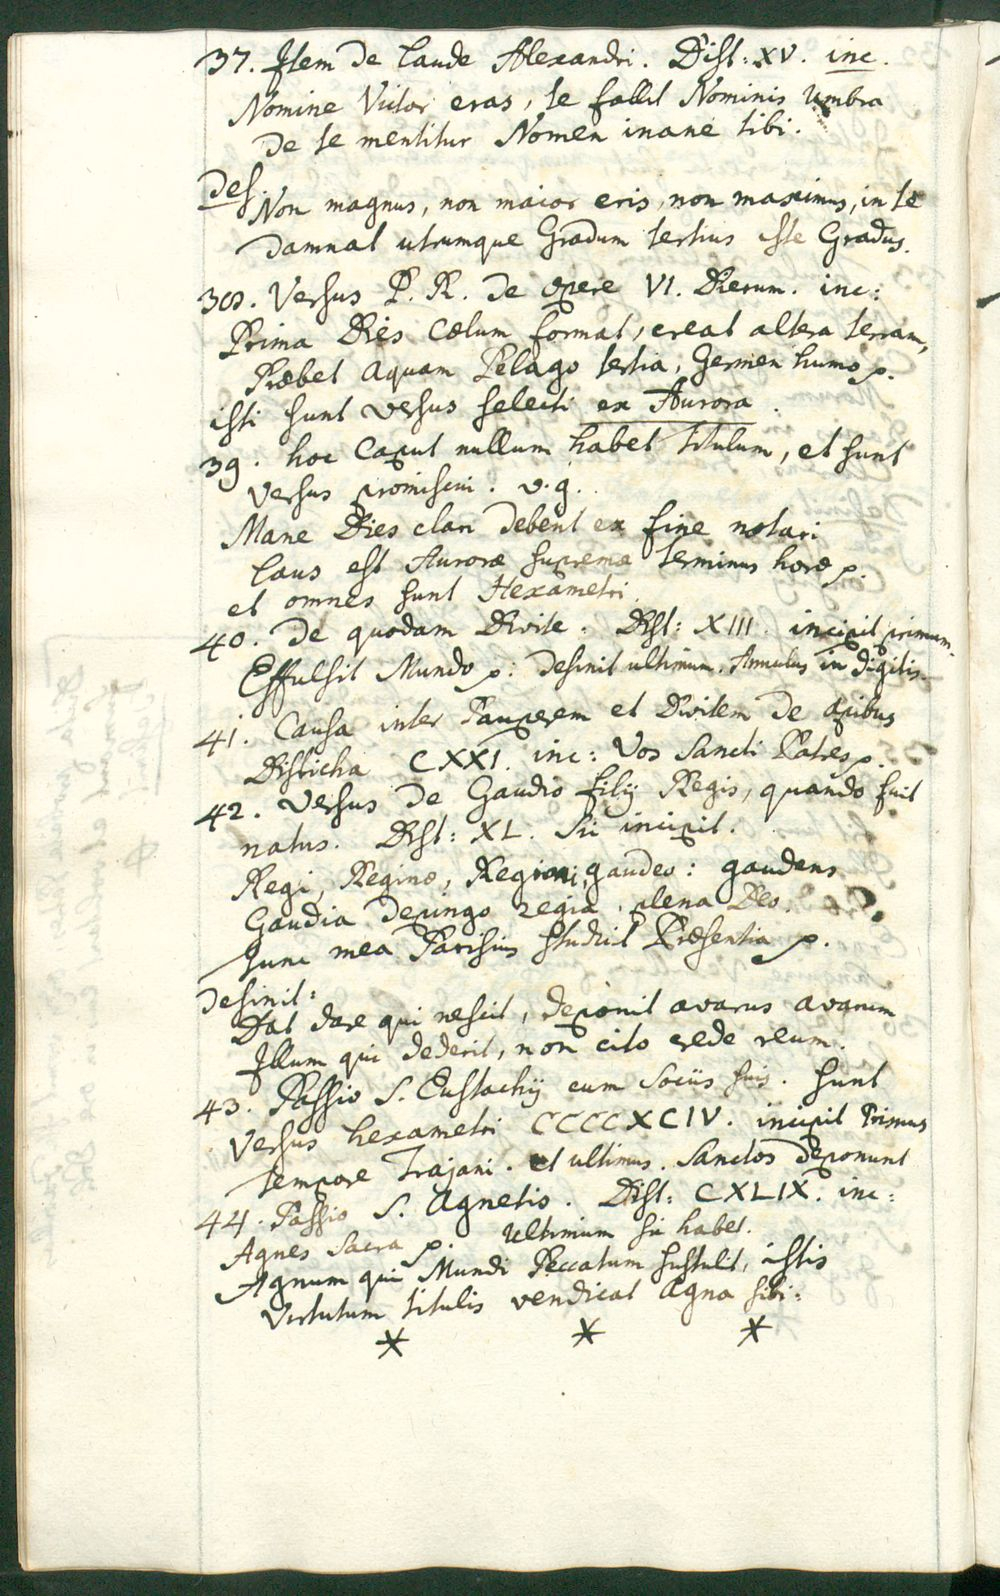 37. Item de laude Alexandri. Dist: XV. inc.
Nomine Victor eras, te fallit Nominis umbra
De te mentitur Nomen inane tibi.
Des.
Non magnus, non maior eris, non maximus, in te
damnat utrumque Gradum tertius iste Gradus.
38. Versus P. R. de opere VI. Dierum. inc:
Prima Dies Cælum format, creat altera terram,
Præbet aquam Pelago tertia, Germen humo p.
isti sunt versus selecti ex Aurora.
39. hoc Caput nullum habet titulum, et sunt
versus promiscui. v.g.
Mane Dies clari debent ex fine notari
laus est Auroræ supremæ terminus horæ p.
et omnes sunt Hexametri.
40. De quodam Divite. Dist: XIII. incipit primum.
Effulsit Mundo p: desinit ultimum. Annulus in digitis.
41. Causa inter Pauperem et Divitem de opibus
Disticha CXXI. inc: Vos Sancti Patres p.
42. Versus de Gaudio filij Regis, quando fuit
natus. Dist: XL. Sic incipit.
Regi, Reginæ, Regioni, gaudeo: gaudens
Gaudia depingo regia, plena Deo.
hunc mea Parisius studuit Præsentia p.
desinit:
Dat dare qui nescit, deponit avarus avarum
Illum qui dederit, non cito crede reum.
43. Passio S. Eustachij cum Sociis suis. sunt
Versus hexametri CCCCXCIV. incipit Primus
tempore Trajani. et ultimus. Sanctos deponunt
44. Passio S. Agnetis. Dist: CXLIX. inc:
Agnes Sacra p. Ultimum sic habet.
Agnum qui Mundi Peccatum sustulit, istis
Virtutum titulis vendicat Agna sibi:
* * *